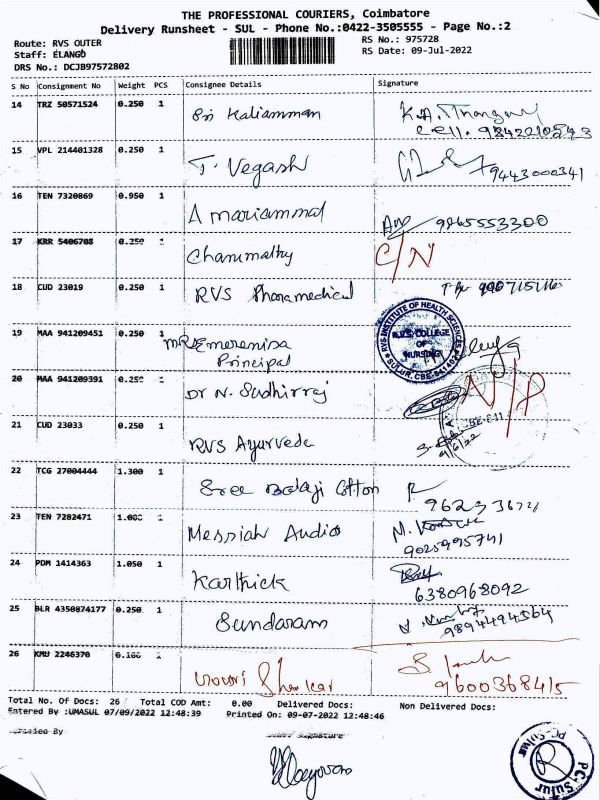 THE PROFESSIONAL COURIERS, Coimbatore
Delivery Runsheet - SUL - Phone No.:0422-3505555 - Page No.:2
Route: RVS OUTER RS No.: 975728
Staff: ELANGO RS Date: 09-Jul-2022
DRS No.: DCJB97572802
S No Consignment No Weight PCS Consignee Details Signature
14 TRZ 50571524 0.250 1 Sri Kaliamman
cell. 9842210543
15 VPL 214401328 0.250 1 T. Vegash 9443000341
16 TEN 7320869 0.950 1 A mariammal 9865553300
17 KRR 5406708 0.250 1 Chanmathy C/N
18 CUD 23019 0.250 1 RVS Pharamedical
19 MAA 941209451 0.250 1
Principal
RVS INSTITUTE OF HEALTH SCIENCES
R.V.S. COLLEGE
OF
NURSING
SULUR, CBE-641402
20 MAA 941209391 0.250 1 Dr N. Sudhirraj N/P
21 CUD 23033 0.250 1 RVS Ayurveda
22 TCG 27004444 1.300 1 Sree Balaji Cotton
23 TEN 7282471 1.000 1 Messiah Audio
9025995741
24 PDM 1414363 1.050 1 Karthick
6380968092
25 BLR 4350874177 0.250 1 Sundaram
9894494564
26 KMU 2246370 0.100 1 Gowri Shankar
9600368415
Total No. Of Docs: 26 Total COD Amt: 0.00 Delivered Docs: Non Delivered Docs:
Entered By :UMASUL 07/09/2022 12:48:39 Printed On: 09-07-2022 12:48:46
Staff Signature
PC-Sulur